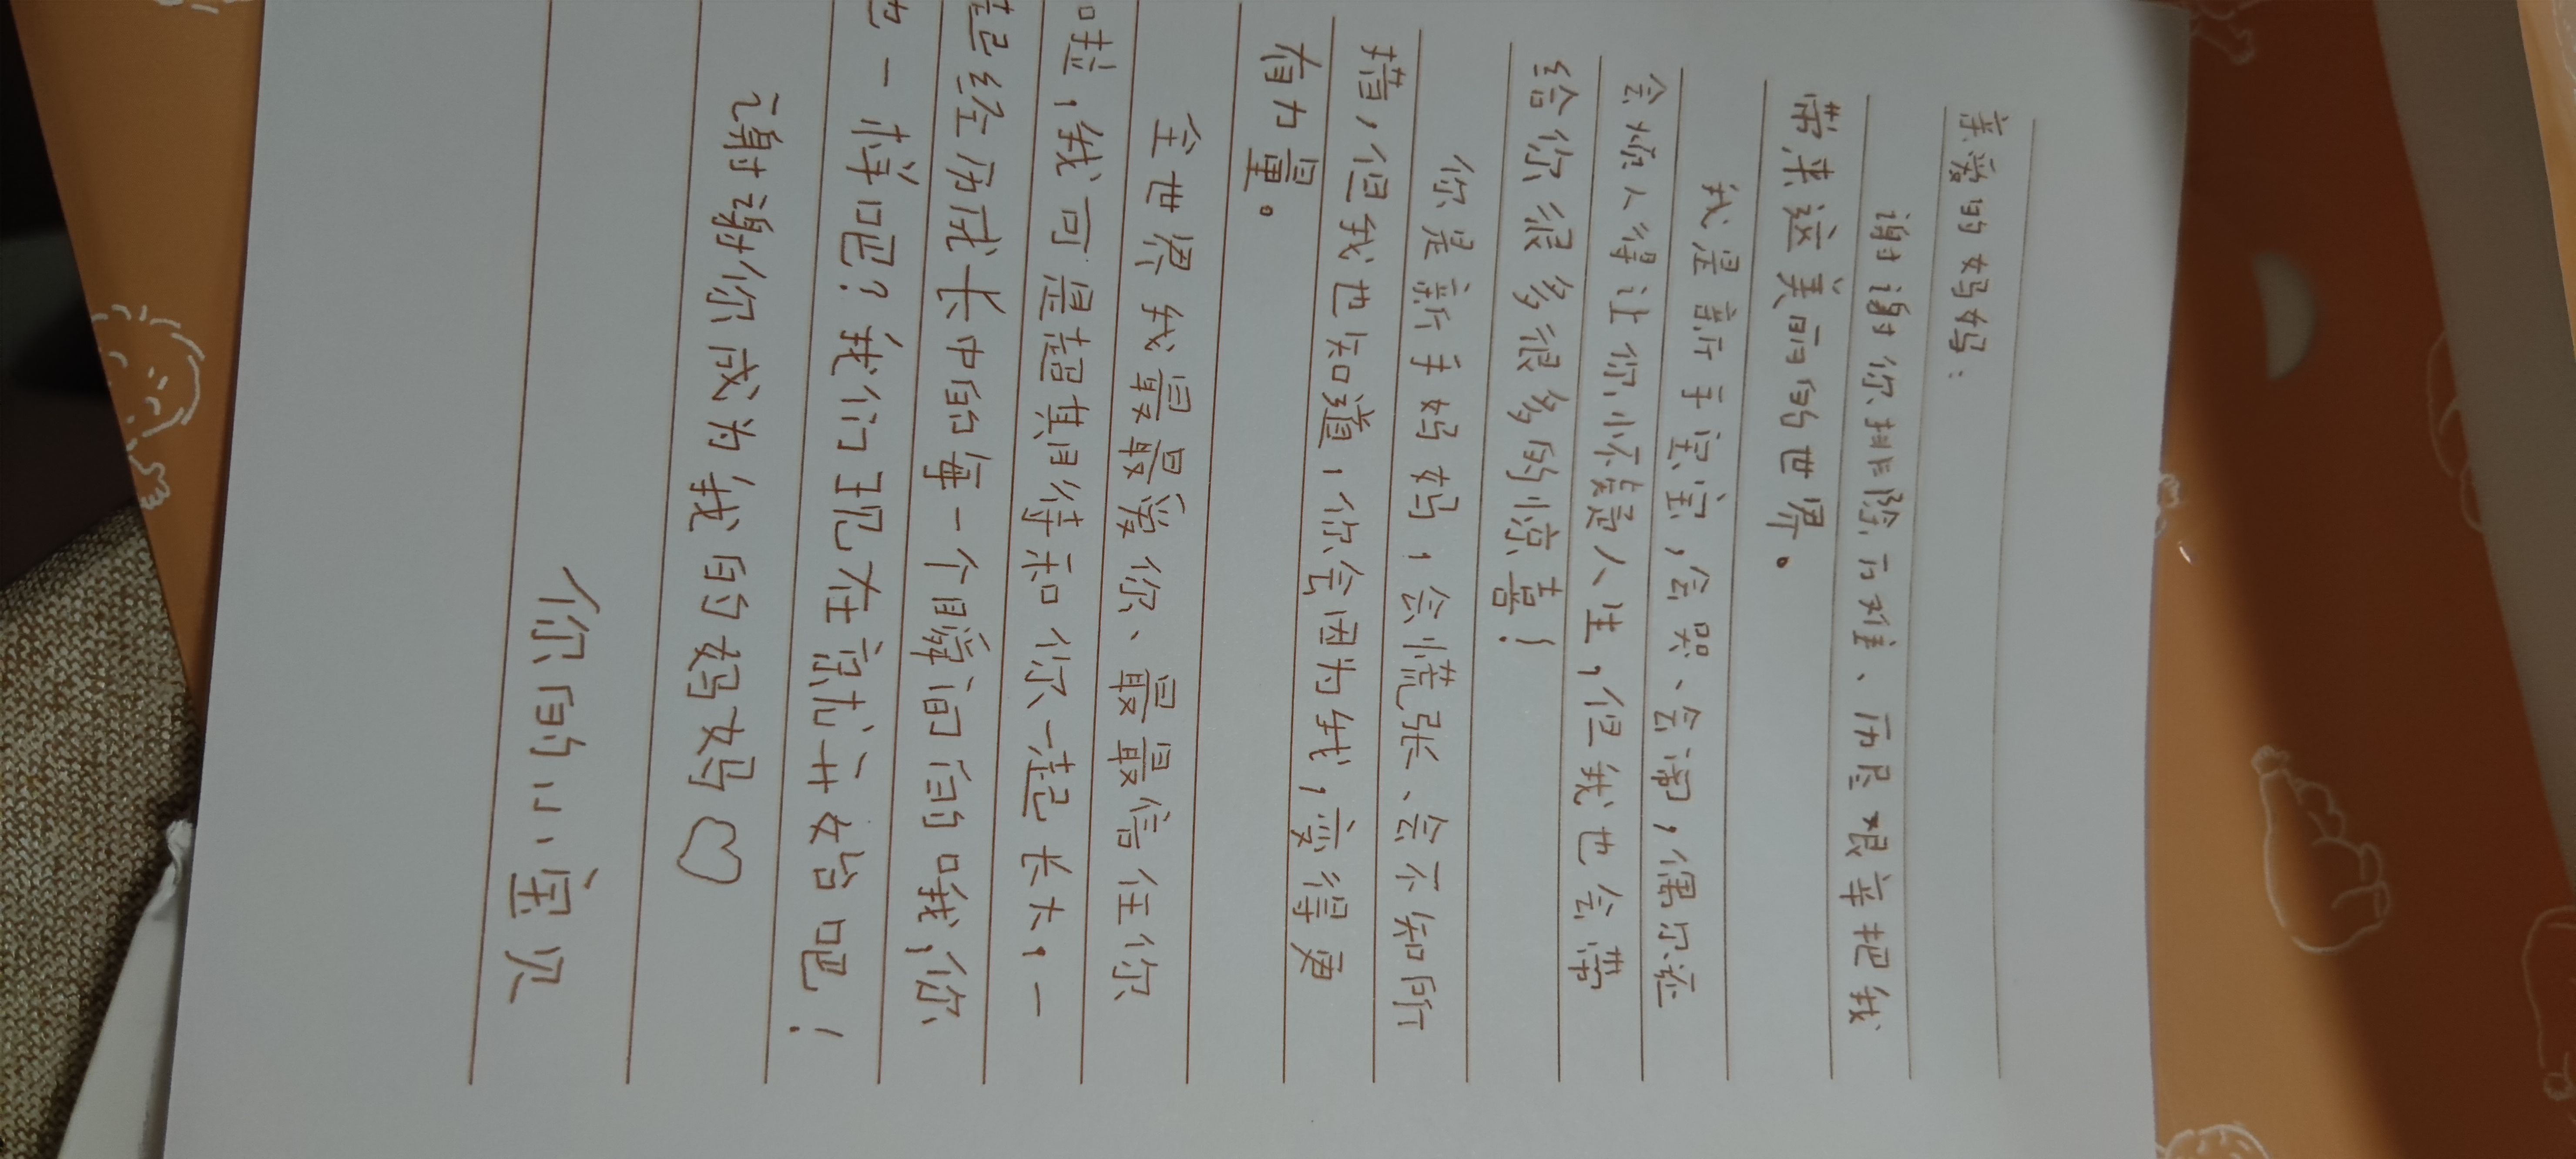 亲爱的妈妈：
谢谢你排除万难、历尽艰辛把我
带来这美丽的世界。
我是新手宝宝，会哭、会闹，偶尔还
会烦人得让你怀疑人生，但我也会带
给你很多很多的惊喜！
你是新手妈妈，会慌张、会不知所
措，但我也知道，你会因为我，变得更
有力量。
全世界我最最爱你、最最信任你
啦，我可是超期待和你一起长大，一
起经历成长中的每一个瞬间的哦，你
也一样吧？我们现在就开始吧！
谢谢你成为我的妈妈♡
你的小宝贝